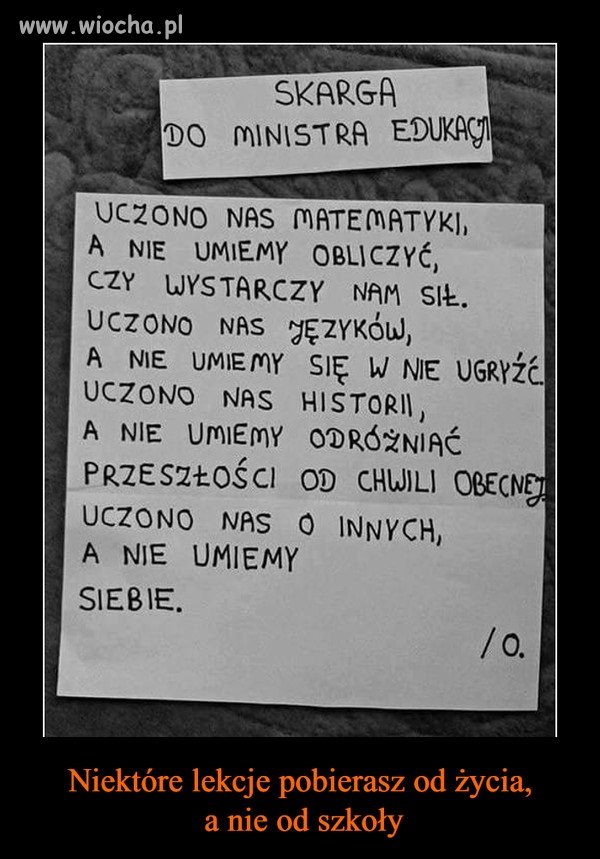 www.wiocha.pl
SKARGA
DO MINISTRA EDUKACJI
UCZONO NAS MATEMATYKI,
A NIE UMIEMY OBLICZYĆ,
CZY WYSTARCZY NAM SIŁ.
UCZONO NAS JĘZYKÓW,
A NIE UMIEMY SIĘ W NIE UGRYŹĆ.
UCZONO NAS HISTORII,
A NIE UMIEMY ODRÓŻNIAĆ
PRZESZŁOŚCI OD CHWILI OBECNEJ.
UCZONO NAS O INNYCH,
A NIE UMIEMY
SIEBIE.
/O.
Niektóre lekcje pobierasz od życia,
a nie od szkoły